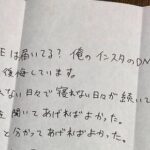 Eは届いてる？俺のインスタのDM
後悔しています。
ない日々で寝れない日々が続いて
を聞いてあげればよかった。
と分かってあげればよかった。